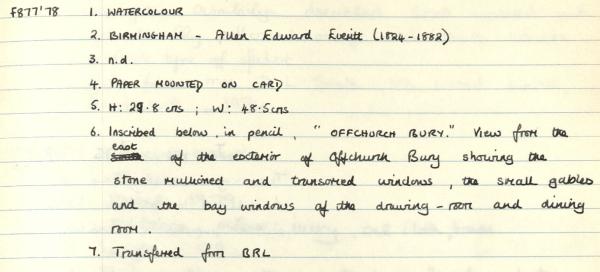 F877'78 1. WATERCOLOUR
2. BIRMINGHAM - Allen Edward Everitt (1824-1882)
3. n.d.
4. PAPER MOUNTED ON CARD
5. H: 29.8 cms ; W: 48.5 cms
6. Inscribed below, in pencil, "OFFCHURCH BURY." View from the
east of the exterior of Offchurch Bury showing the
stone mullioned and transomed windows, the small gables
and the bay windows of the drawing-room and dining
room.
7. Transferred from BRL